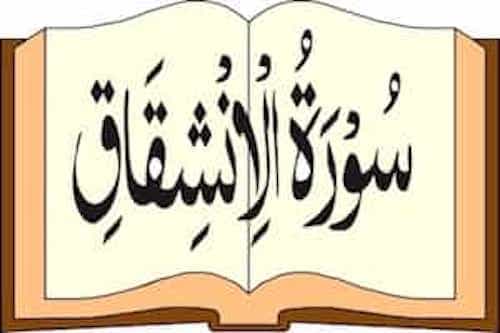 سُوْرَةُ الْاِنْشِقَاقِ